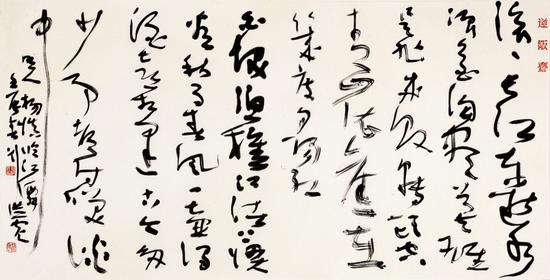 滚滚长江东逝水
浪花淘尽英雄
是非成败转头空
青山依旧在
几度夕阳红
白发渔樵江渚上惯
看秋月春风一壶浊
酒喜相逢古今多
少事都付笑谈
中
杨慎临江仙